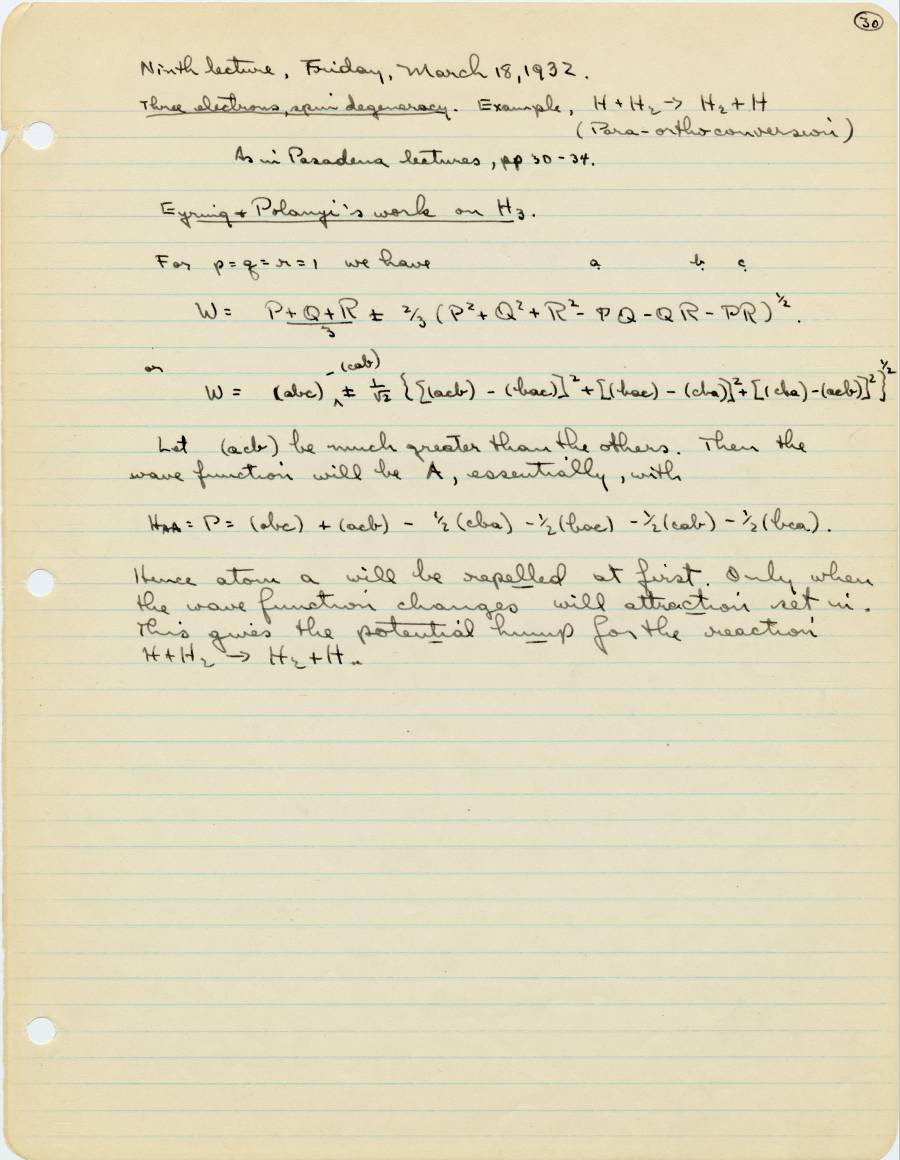 30
Ninth lecture, Friday, March 18, 1932.
Three electrons, spin degeneracy. Example, H + H₂ → H₂ + H
(Para-ortho conversion)
As in Pasadena lectures, pp 30-34.
Eyring + Polanyi's work on H₃.
For p = q = r = 1 we have a b c
W = (P + Q + R)/3 ± 2/3 (P² + Q² + R² - PQ - QR - PR)^½.
or
W = (abc) - (cab) ± 1/√2 {[(acb) - (bac)]² + [(bac) - (cba)]² + [(cba) - (acb)]²}^½
Let (acb) be much greater than the others. Then the
wave function will be A, essentially, with
H_AA = P = (abc) + (acb) - ½(cba) - ½(bac) - ½(cab) - ½(bca).
Hence atom a will be repelled at first. Only when
the wave function changes will attraction set in.
This gives the potential hump for the reaction
H + H₂ → H₂ + H..